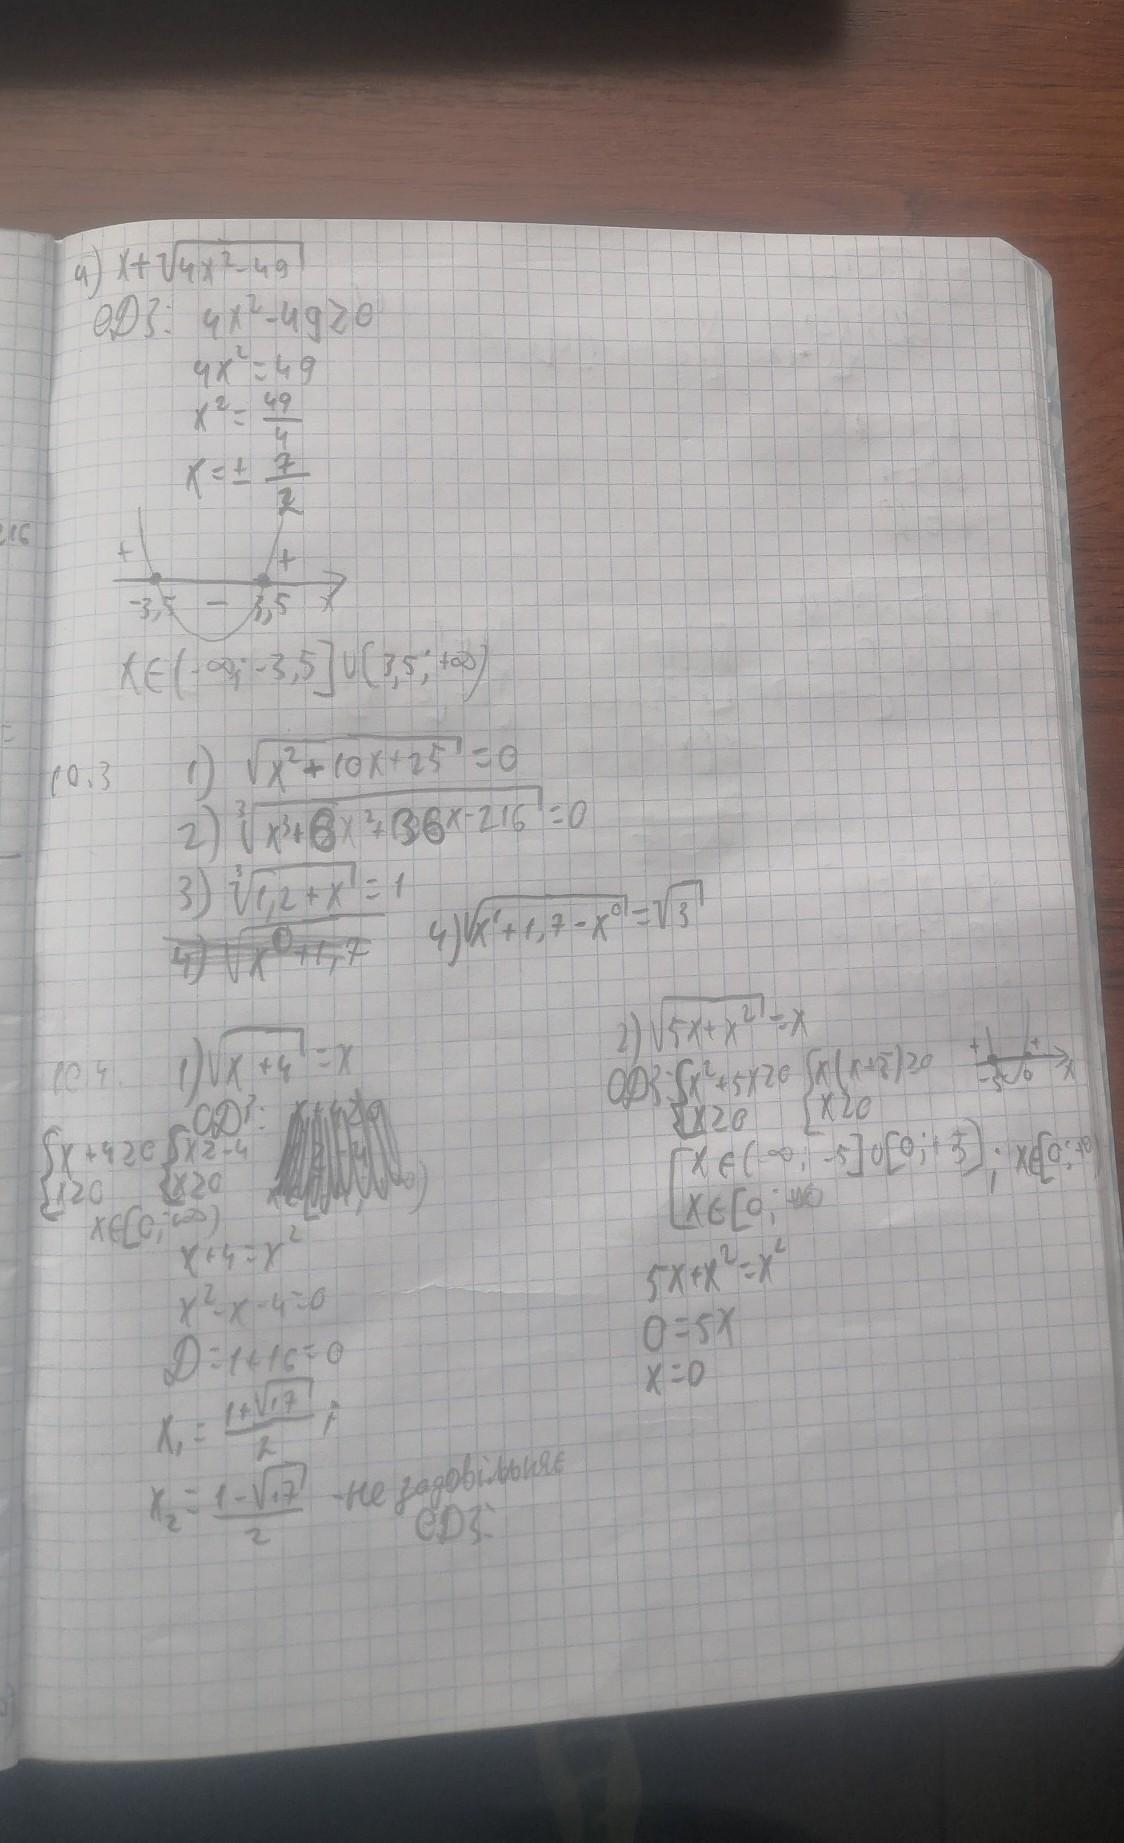 4) x+√4x²-49
ОДЗ: 4x²-49≥0
4x²=49
x²=49/4
x=± 7/2
+ +
-3,5 - 3,5 x
x∈(-∞;-3,5]∪[3,5;+∞)
216
=
10.3 1) √x²+10x+25=0
2) ³√x³+6x²+36x-216=0
3) ³√1,2+x=1
4) √x⁰+1,7
4) √x¹+1,7-x⁰=√3
10.4. 1) √x+4=x
ОДЗ:
{x+4≥0 {x≥-4
{x≥0 {x≥0
x∈[0;+∞)
x+4=x²
x²-x-4=0
D=1+16=0
x₁=(1+√17)/2;
x₂=(1-√17)/2 -не задовільняє
ОДЗ:
2) √5x+x²=x
ОДЗ: {x²+5x≥0 {x(x+5)≥0
{x≥0 {x≥0
+ - +
-5 0 x
[x∈(-∞;-5]∪[0;+5); x∈[0;+∞)
[x∈[0;+∞
5x+x²=x²
0=5x
x=0